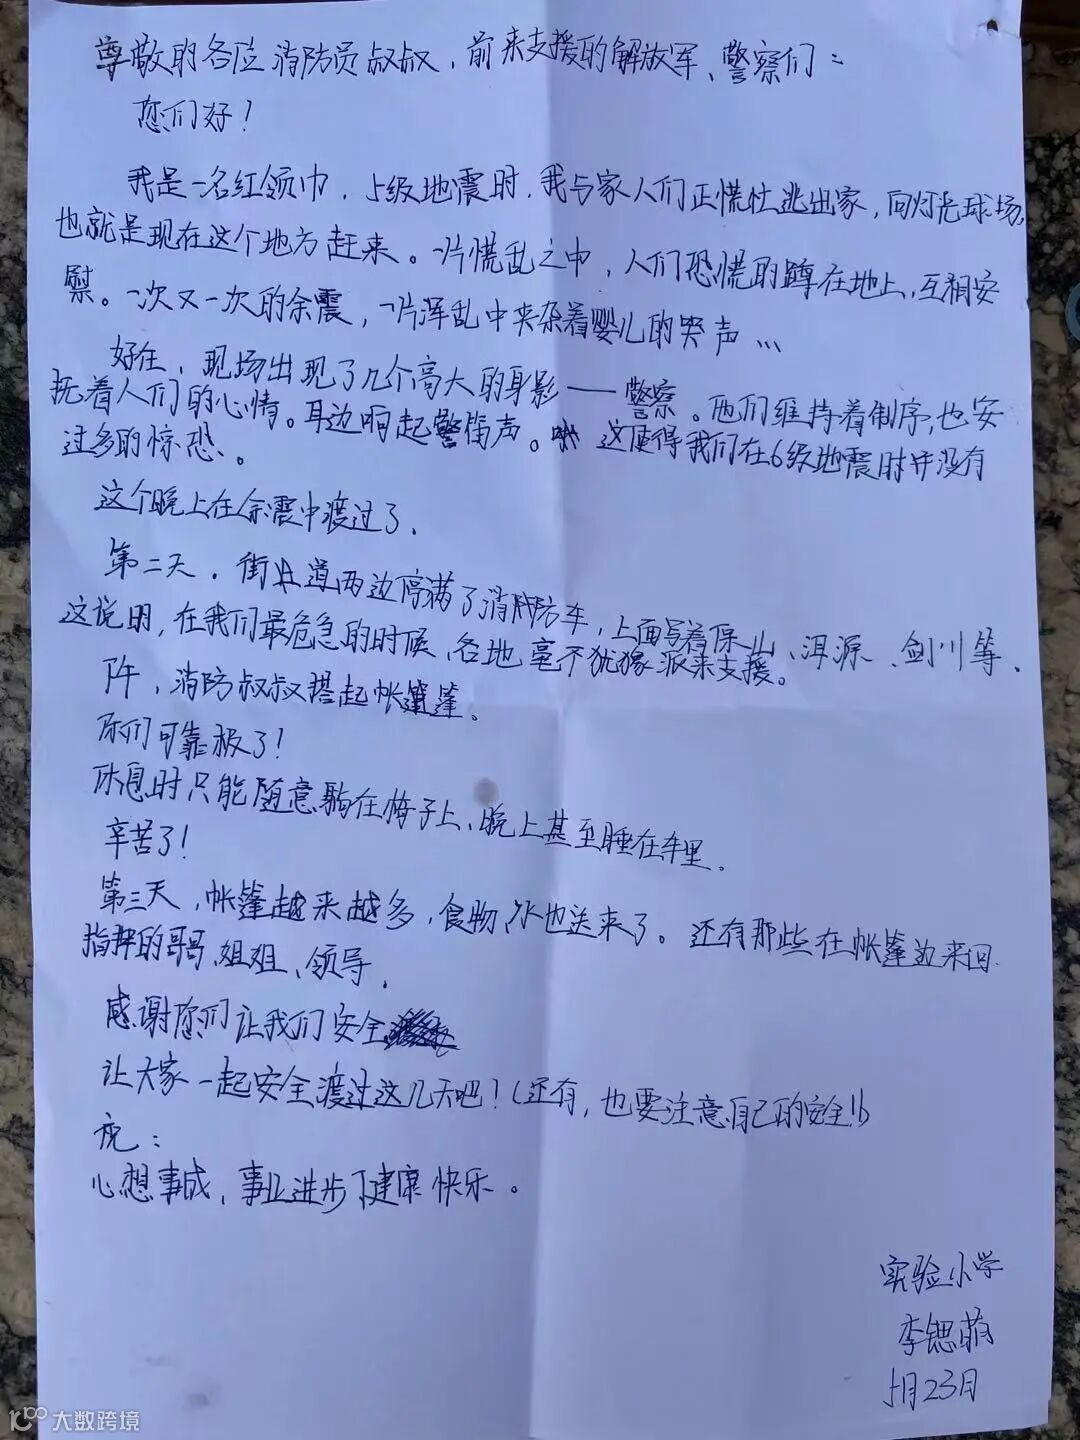 尊敬的各位消防员叔叔，前来支援的解放军、警察们：
您们好！
我是一名红领巾，5级地震时，我与家人们正慌忙逃出家，向灯光球场，
也就是现在这个地方赶来。一片慌乱之中，人们恐慌的蹲在地上，互相安
慰。一次又一次的余震，一片浑乱中夹杂着婴儿的哭声…
好在，现场出现了几个高大的身影——警察。他们维持着制序，也安
抚着人们的心情。耳边响起警笛声。这使得我们在6级地震时并没有
过多的惊恐。
这个晚上在余震中渡过了。
第二天，街道两边停满了消防车，上面写着保山、洱源、剑川等，
这说明，在我们最危急的时候，各地毫不犹豫派来支援。
下午，消防叔叔搭起帐篷。
你们可靠极了！
休息时只能随意躺在椅子上，晚上甚至睡在车里。
辛苦了！
第三天，帐篷越来越多，食物，水也送来了。还有那些在帐篷边来回
指挥的哥哥、姐姐、领导，
感谢您们让我们安全
让大家一起安全渡过这几天吧！（还有，也要注意自己的安全!!）
祝：
心想事成，事业进步，健康快乐。
实验小学
李锶萌
5月23日
大数跨境